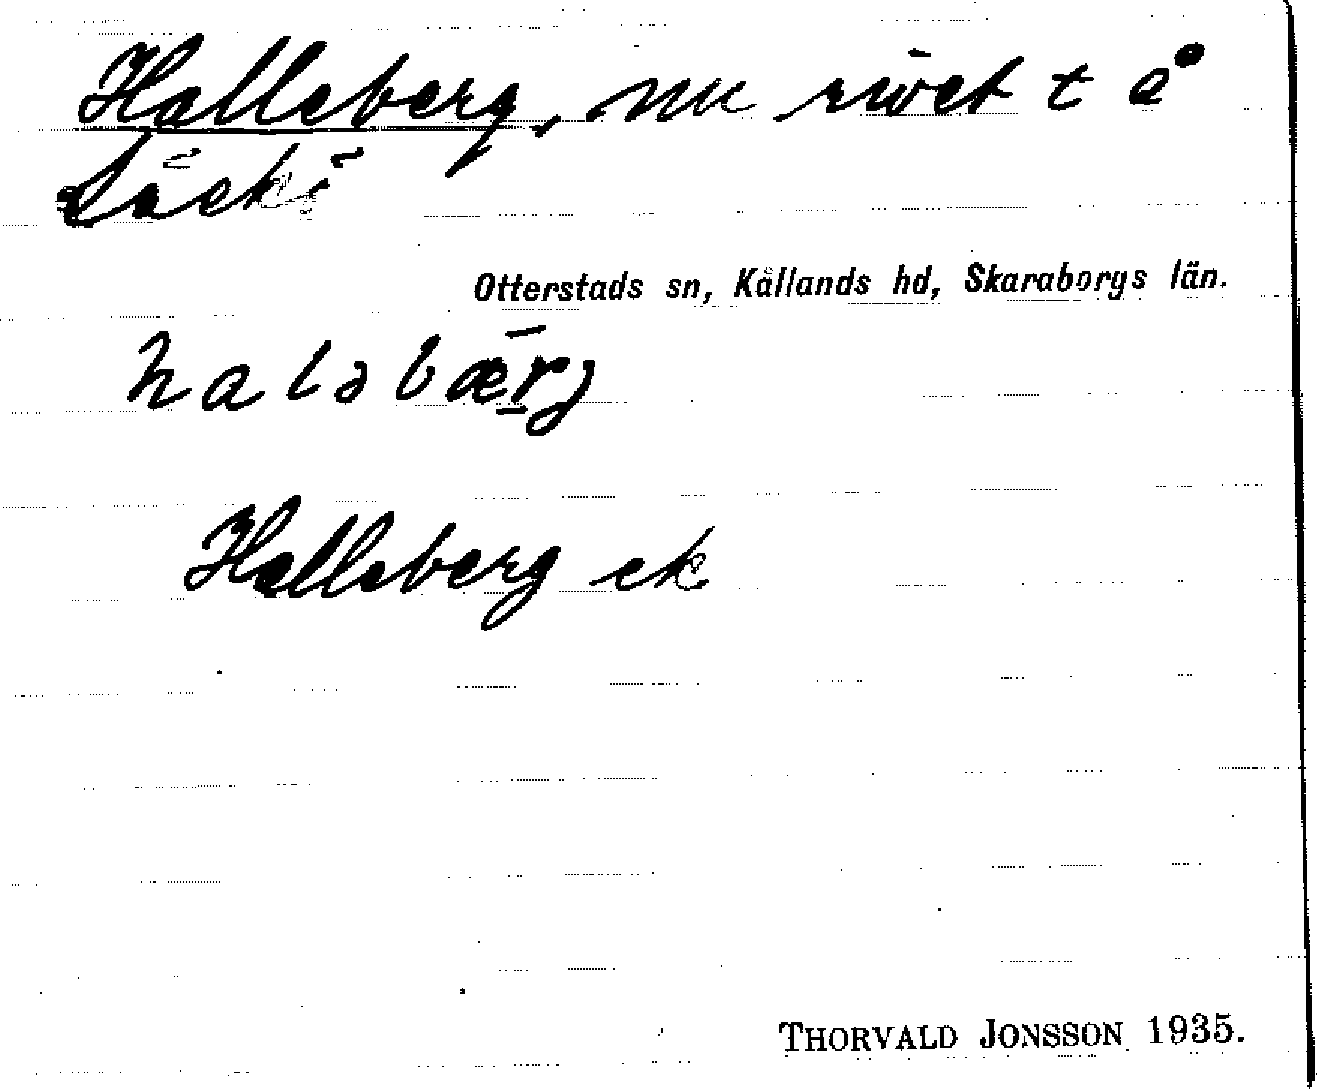 Halleberg, nu rivet t å
Läckö
Otterstads sn, Kållands hd, Skaraborgs län.
haləbærj
Halleberg ek
THORVALD JONSSON 1935.